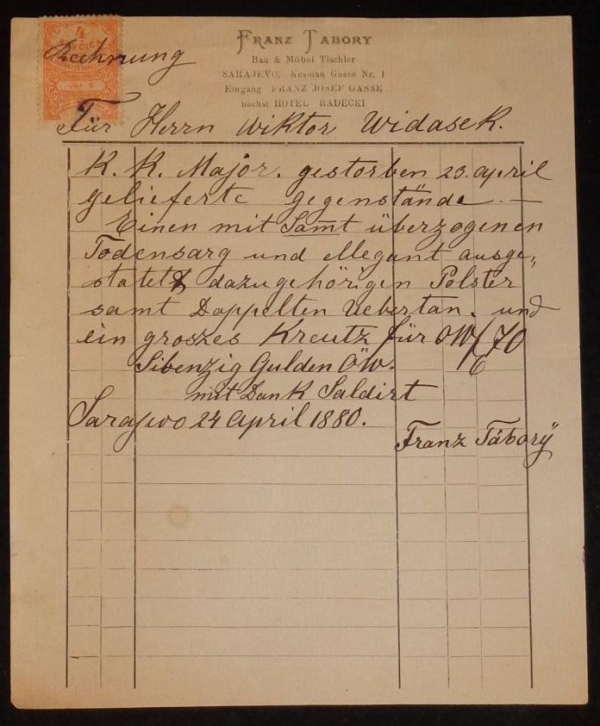 FRANZ TABORY
Bau & Möbel Tischler
SARAJEVO, Kosman Gasse Nr. 1
Eingang FRANZ JOSEF GASSE
nächst HOTEL RADECKI
4
Rechnung
Für Herrn Wiktor Widasek.
K. K. Major. gestorben 23. april
gelieferte gegenstände. —
Einen mit Samt überzogenen
Todensarg und ellegant ausge„
statet dazugehörigen Polster
samt Doppelten Uebertan. und
ein groszes Kreutz für ÖW f 70
Sibenzig Gulden ÖW.
mit Dank Saldirt
Sarajevo 24 april 1880.
Franz Táborÿ